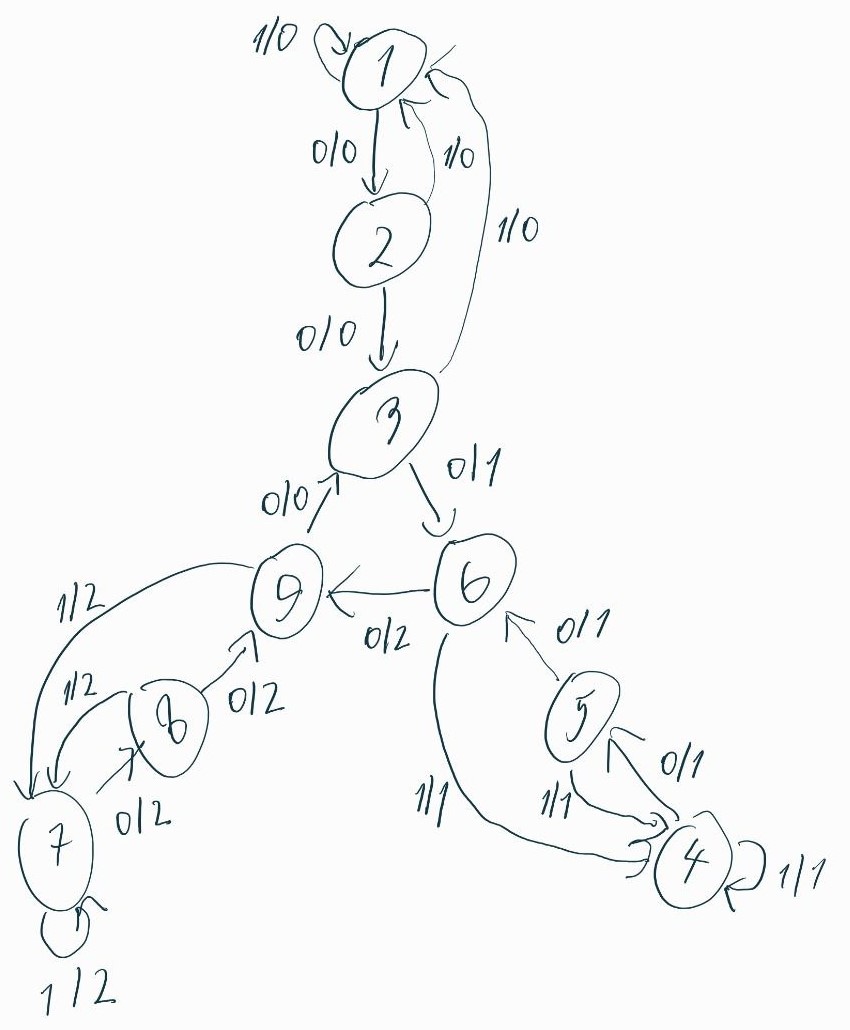 1/0
1
0/0
1/0
2
1/0
0/0
3
0/1
0/0
9
6
1/2
0/2
0/1
1/2
8
0/2
5
0/1
1/1
1/1
0/2
7
4
1/1
1/2